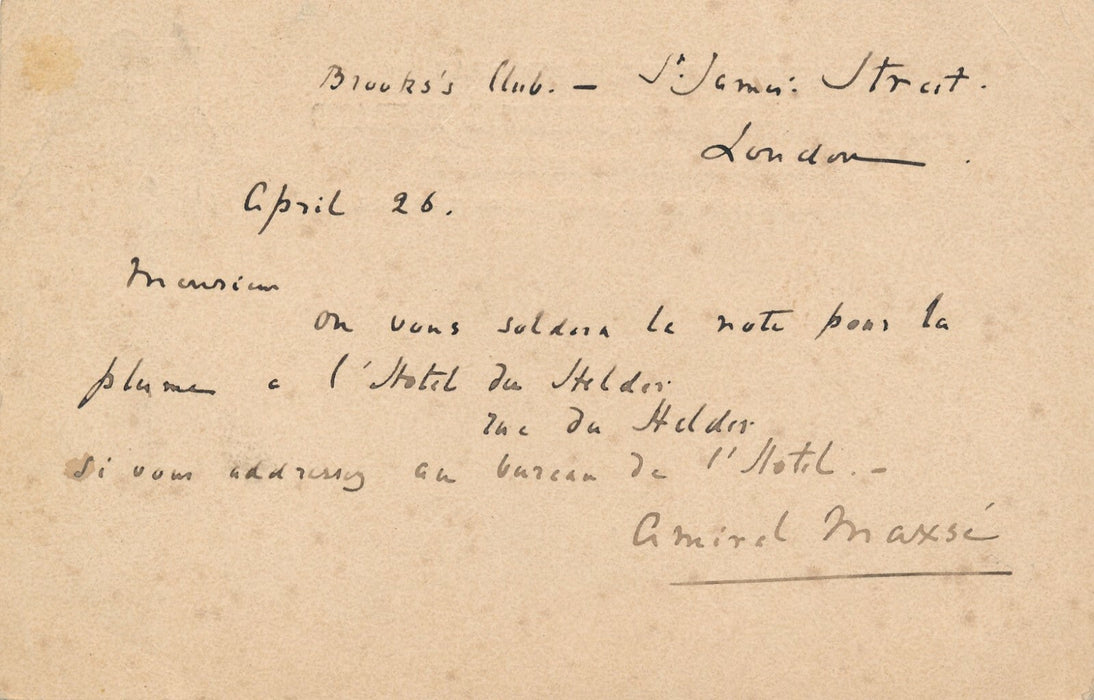 Brooks's Club. – St. James' Street.
London.
April 26.
Monsieur
on vous soldera la note pour la
plume a l'Hotel du Helder
rue du Helder
si vous addressez au bureau de l'Hotel. –
Amiral Maxsé